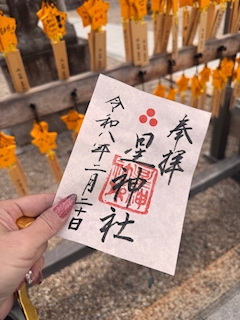 奉拝
星神社
令和八年二月二十日